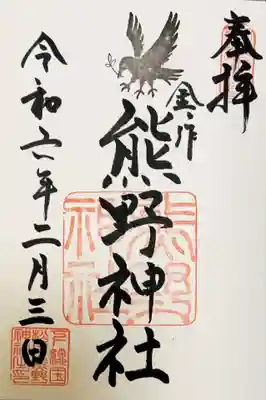 奉拝
金作
熊野神社
令和六年二月三日
熊野神社